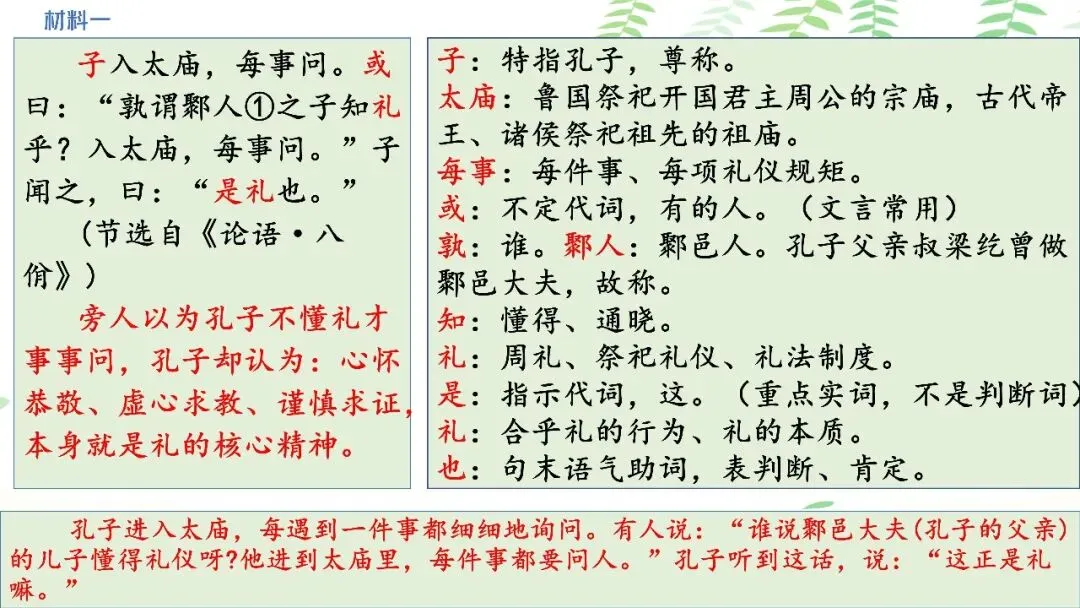 材料一
子入太庙，每事问。或
曰：“孰谓鄹人①之子知礼
乎？入太庙，每事问。”子
闻之，曰：“是礼也。”
(节选自《论语·八
佾》)
旁人以为孔子不懂礼才
事事问，孔子却认为：心怀
恭敬、虚心求教、谨慎求证，
本身就是礼的核心精神。
子：特指孔子，尊称。
太庙：鲁国祭祀开国君主周公的宗庙，古代帝
王、诸侯祭祀祖先的祖庙。
每事：每件事、每项礼仪规矩。
或：不定代词，有的人。（文言常用）
孰：谁。鄹人：鄹邑人。孔子父亲叔梁纥曾做
鄹邑大夫，故称。
知：懂得、通晓。
礼：周礼、祭祀礼仪、礼法制度。
是：指示代词，这。（重点实词，不是判断词）
礼：合乎礼的行为、礼的本质。
也：句末语气助词，表判断、肯定。
孔子进入太庙，每遇到一件事都细细地询问。有人说：“谁说鄹邑大夫(孔子的父亲)
的儿子懂得礼仪呀?他进到太庙里，每件事都要问人。”孔子听到这话，说：“这正是礼
嘛。”